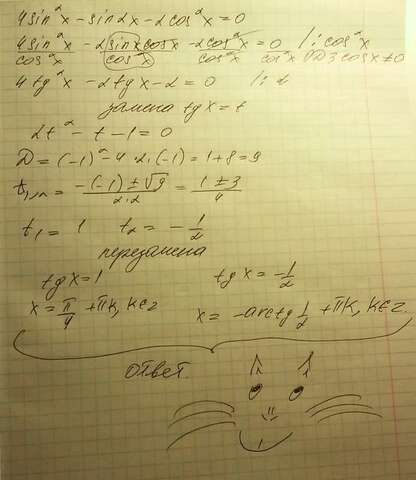 4sin²x - sin2x - 2cos²x = 0
4sin²x/cos²x - 2sinxcosx/cos²x - 2cos²x/cos²x = 0/cos²x /:cos²x ОДЗ cosx≠0
4tg²x - 2tgx - 2 = 0 /:2
замена tgx = t
2t² - t - 1 = 0
D = (-1)² - 4·2·(-1) = 1+8 = 9
t₁,₂ = (-(-1) ± √9)/(2·2) = (1 ± 3)/4
t₁ = 1 t₂ = -1/2
перезамена
tgx = 1 tgx = -1/2
x = π/4 + πk, k∈z x = -arctg 1/2 + πk, k∈z.
ответ.